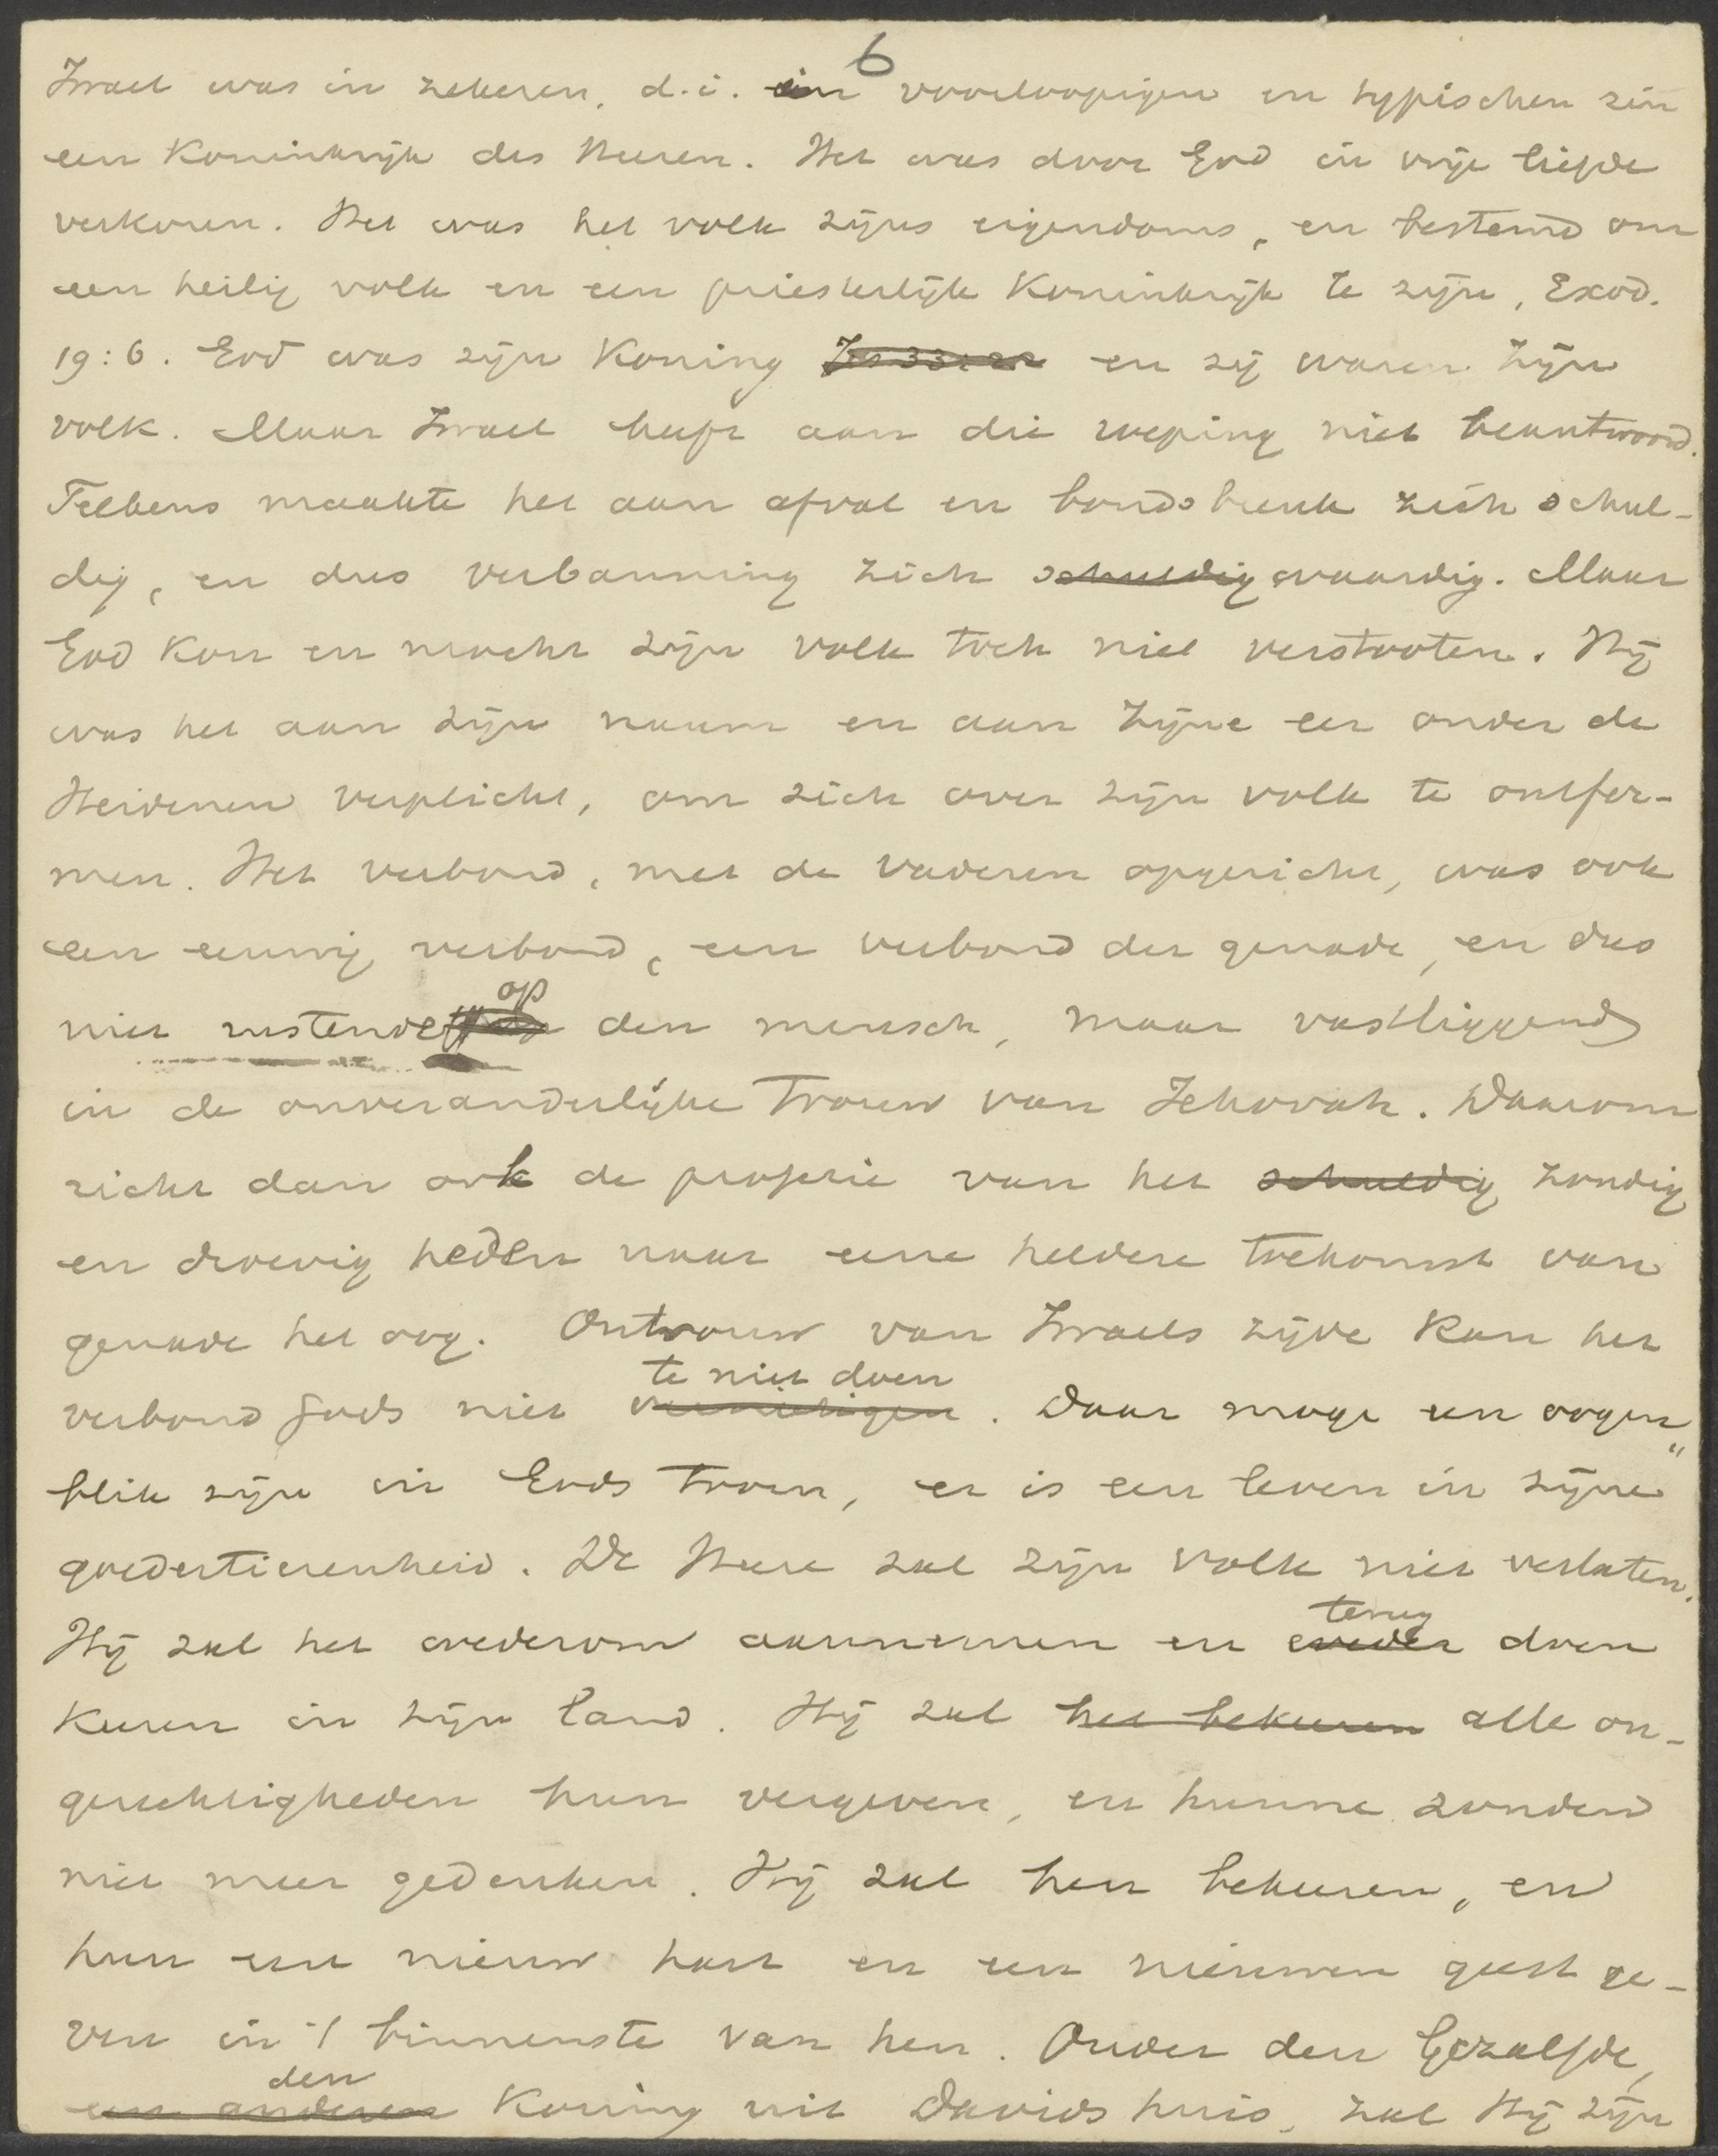 6
Israel was in zekeren, d.i. in voorloopigen en typischen zin
een Koninkrijk des Heeren. Het was door God in vrije liefde
verkoren. Het was het volk zijns eigendoms, en bestemd om
een heilig volk en een priesterlijk Koninkrijk te zijn, Exod.
19:6. God was zijn Koning Jes 33:22 en zij waren zijn
volk. Maar Israel heeft aan die roeping niet beantwoord.
Telkens maakte het aan afval en bondsbreuk zich schul-
dig, en dus verbanning zich schuldig waardig. Maar
God kon en mocht zijn volk toch niet verstooten. Hij
was het aan zijn naam en aan zijne eer onder de
Heidenen verplicht, om zich over zijn volk te ontfer-
men. Het verbond, met de vaderen opgericht, was ook
een eeuwig verbond, een verbond der genade, en dus
op
niet rustende den mensch, maar vastliggend
in de onveranderlijke Trouw van Jehovah. Daarom
richt dan ook de profetie van het schuldig zondig
en droevig heden naar eene heldere toekomst van
genade het oog. Ontrouw van Israels zijde kan het
te niet doen
verbond Gods niet vernietigen. Daar moge een oogen"
blik zijn in Gods toorn, er is een leven in zijne
goedertierenheid. De Heere zal zijn volk niet verlaten.
terug
Hij zal het wederom aannemen en weder doen
keeren in zijn land. Hij zal het bekeeren alle on-
gerechtigheden hun vergeven, en hunne zonden
niet meer gedenken. Hij zal hen bekeeren, en
hun een nieuw hart en een nieuwen geest ge-
ven in 't binnenste van hen. Onder den Gezalfde,
den
een anderen Koning uit Davids huis, zal Hij zijn